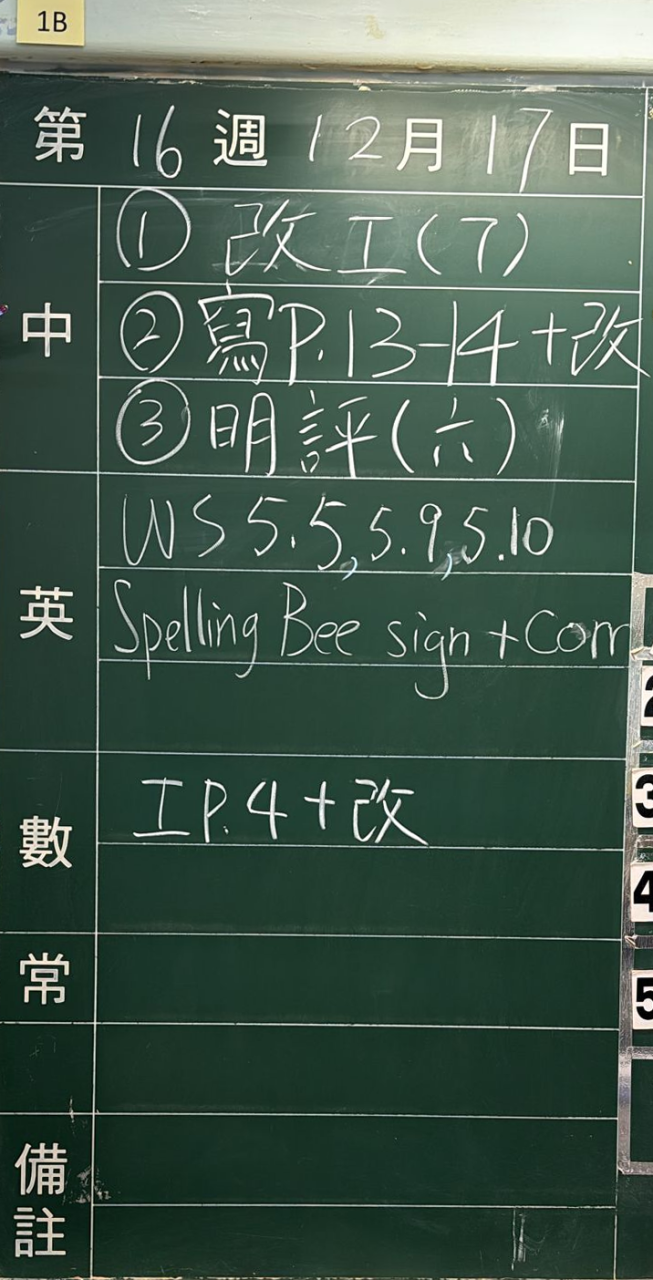 1B
第 16 週 12 月 17 日
中
① 改工(7)
② 寫P.13-14+改
③ 明評(六)
英
WS 5.5, 5.9, 5.10
Spelling Bee sign + Corr
數
工P.4+改
常
備註
2
3
4
5